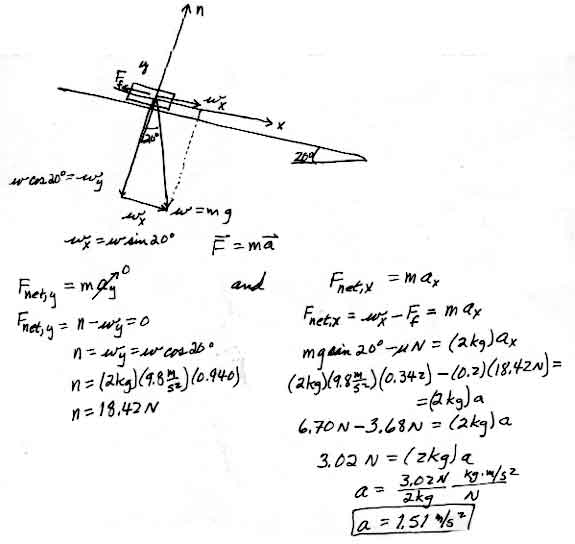 n
y
F_f
w_x
x
20°
20°
w cos 20° = w_y
w_x
w = mg
w_x = w sin 20°
F⃗ = ma⃗
F_net,y = m a_y 0
and
F_net,y = n - w_y = 0
n = w_y = w cos 20°
n = (2kg)(9.8 m/s²)(0.940)
n = 18.42 N
F_net,x = m a_x
F_net,x = w_x - F_f = m a_x
mg sin 20° - μN = (2kg) a_x
(2kg)(9.8 m/s²)(0.342) - (0.2)(18.42 N) =
= (2kg) a
6.70 N - 3.68 N = (2kg) a
3.02 N = (2kg) a
a = 3.02 N / 2kg kg·m/s² / N
a = 1.51 m/s²